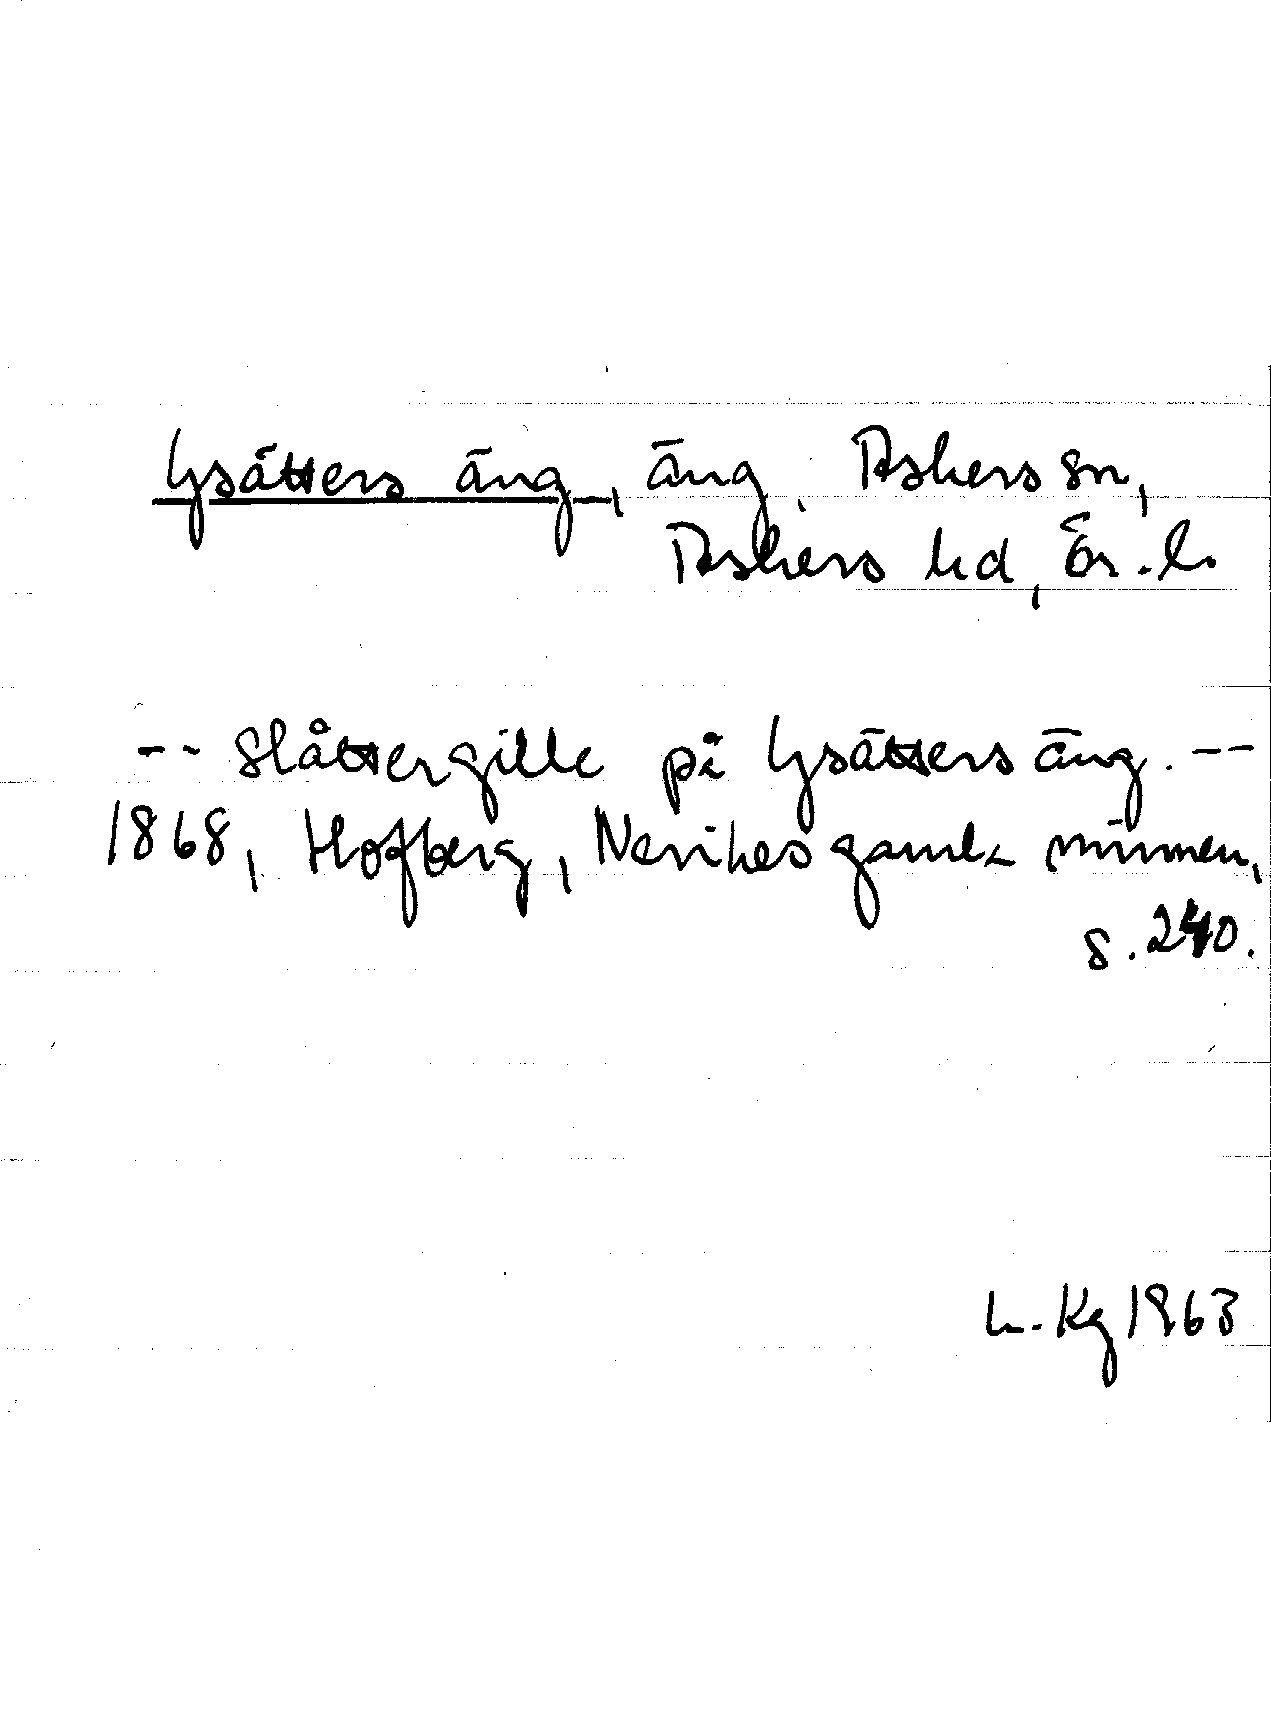 Ysätters äng, äng, Askers sn,
Askers hd, Ör. l.
-- Slåttergille på Ysätters äng. --
1868, Hofberg, Nerikes gamla minnen,
s. 240.
L. Kg 1963